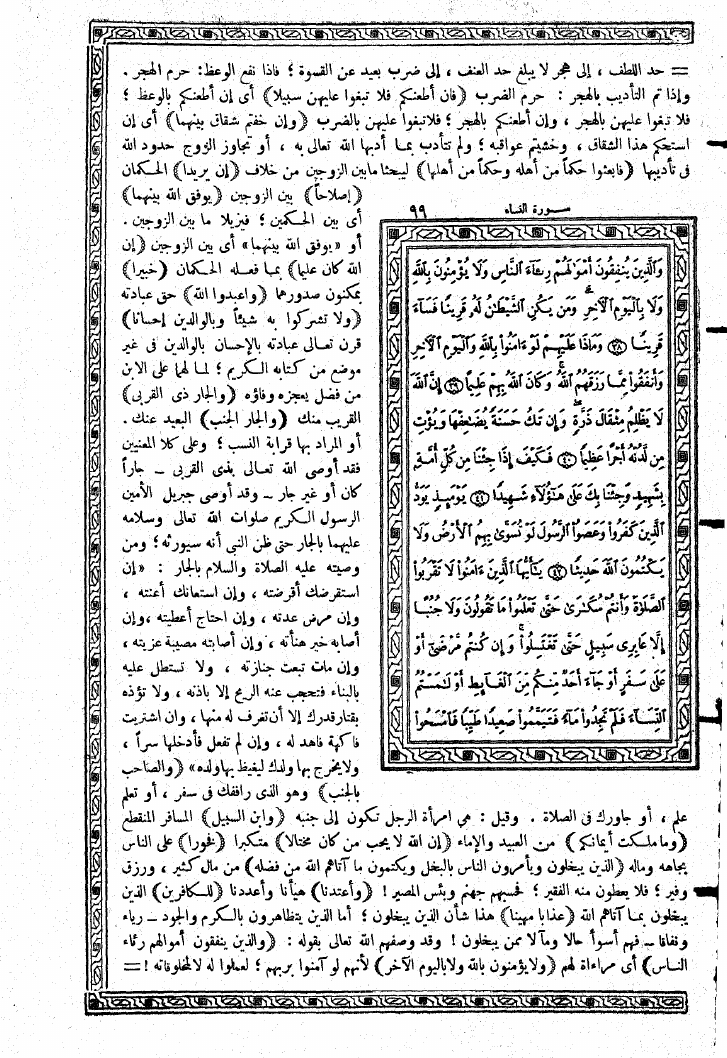 = حد اللطف ، إلى هجر لا يبلغ حد العنف ، إلى ضرب بعيد عن القسوة ؛ فاذا نفع الوعظ: حرم الهجر .
وإذا تم التأديب بالهجر : حرم الضرب (فان أطعنكم فلا تبغوا عليهن سبيلا) أى إن أطعنكم بالوعظ ؛
فلا تبغوا عليهن بالهجر ، وإن أطعنكم بالهجر ؛ فلاتبغوا عليهن بالضرب (وإن خفتم شقاق بينهما) أى إن
استحكم هذا الشقاق ، وخشيتم عواقبه ؛ ولم تتأدب بمـا أدبها الله تعالى به ، أو تجاوز الزوج حدود الله
فى تأديبها (فابعثوا حكما من أهله وحكما من أهلها) ليبحثا مابين الزوجين من خلاف (إن يريدا) الحكمان
(إصلاحاً) بين الزوجين (يوفق الله بينهما)
أى بين الحكمين ؛ فيزيلا ما بين الزوجين .
أو «يوفق الله بينهما» أى بين الزوجين (إن
الله كان عليما) بمـا فعـله الحـكمان (خبيرا)
بمكنون صدورهما (واعبدوا الله) حق عبادته
(ولا تشركوا به شيئاً وبالوالدين إحسانا)
قرن تعـالى عبادته بالإحسان بالوالدين فى غير
موضع من كتابه الـكريم ؛ لمـا لهما على الابن
من فضل يعجزه وفاؤه (والجار ذى القربى)
القريب منك (والجار الجنب) البعيد عنك .
أو المراد بها قرابة النسب ؛ وعلى كلا المعنيين
فقد أوصى الله تعـالى بذى القربى ـ جاراً
كان أو غير جار ـ وقد أوصى جبريل الأمين
الرسول الـكريم صلوات الله تعالى وسلامه
عليهما بالجار حتى ظن النبى أنه سيورثه ؛ ومن
وصيته عليه الصلاة والسلام بالجار : «إن
استقرضك أقرضته ، وإن استعانك أعنته ،
وإن مرض عدته ، وإن احتاج أعطيته ،وإن
أصابه خير هنأته ، وإن أصابته مصيبة عزيته ،
وإن مات تبعت جنازته ، ولا تستطل عليه
بالبناء فتحجب عنه الريح إلا باذنه ، ولا تؤذه
بقتارقدرك إلا أن تغرف له منها ، وان اشتريت
فاكهة فاهد له ، وإن لم تفعل فأدخلها سراً ،
ولايخرج بها ولدك ليغيظ بها ولده» (والصاحب
بالجنب) وهو الذى رافقك فى سفر ، أو تعلم
سـورة النسـاء ٩٩
وَٱلَّذِينَ يُنفِقُونَ أَمْوَٰلَهُمْ رِئَآءَ ٱلنَّاسِ وَلَا يُؤْمِنُونَ بِٱللَّهِ
وَلَا بِٱلْيَوْمِ ٱلْأَخِرِ ۗ وَمَن يَكُنِ ٱلشَّيْطَٰنُ لَهُۥ قَرِينًا فَسَآءَ
قَرِينًا ﴿٣٨﴾ وَمَاذَا عَلَيْهِمْ لَوْ ءَامَنُوا۟ بِٱللَّهِ وَٱلْيَوْمِ ٱلْأَخِرِ
وَأَنفَقُوا۟ مِمَّا رَزَقَهُمُ ٱللَّهُ ۚ وَكَانَ ٱللَّهُ بِهِمْ عَلِيمًا ﴿٣٩﴾ إِنَّ ٱللَّهَ
لَا يَظْلِمُ مِثْقَالَ ذَرَّةٍ ۖ وَإِن تَكُ حَسَنَةً يُضَٰعِفْهَا وَيُؤْتِ
مِن لَّدُنْهُ أَجْرًا عَظِيمًا ﴿٤٠﴾ فَكَيْفَ إِذَا جِئْنَا مِن كُلِّ أُمَّةٍۭ
بِشَهِيدٍ وَجِئْنَا بِكَ عَلَىٰ هَٰٓؤُلَآءِ شَهِيدًا ﴿٤١﴾ يَوْمَئِذٍ يَوَدُّ
ٱلَّذِينَ كَفَرُوا۟ وَعَصَوُا۟ ٱلرَّسُولَ لَوْ تُسَوَّىٰ بِهِمُ ٱلْأَرْضُ وَلَا
يَكْتُمُونَ ٱللَّهَ حَدِيثًا ﴿٤٢﴾ يَٰٓأَيُّهَا ٱلَّذِينَ ءَامَنُوا۟ لَا تَقْرَبُوا۟
ٱلصَّلَوٰةَ وَأَنتُمْ سُكَٰرَىٰ حَتَّىٰ تَعْلَمُوا۟ مَا تَقُولُونَ وَلَا جُنُبًا
إِلَّا عَابِرِى سَبِيلٍ حَتَّىٰ تَغْتَسِلُوا۟ ۚ وَإِن كُنتُم مَّرْضَىٰٓ أَوْ
عَلَىٰ سَفَرٍ أَوْ جَآءَ أَحَدٌ مِّنكُم مِّنَ ٱلْغَآئِطِ أَوْ لَٰمَسْتُمُ
ٱلنِّسَآءَ فَلَمْ تَجِدُوا۟ مَآءً فَتَيَمَّمُوا۟ صَعِيدًا طَيِّبًا فَٱمْسَحُوا۟
علم ، أو جاورك فى الصلاة . وقيل : هى امرأة الرجل تـكون إلى جنبه (وابن السبيل) المسافر المنقطع
(وما ملـكت أيمانكم) من العبيد والإماء (إن الله لا يحب من كان مختالا) متكبرا (فخورا) على الناس
بجاهه وماله (الذين يبخلون ويأمرون الناس بالبخل ويكتمون ما آتاهم الله من فضله) من مال كثير ، ورزق
وفير ؛ فلا يعطون منه الفقير ؛ فحسبهم جهنم وبئس المصير ! (وأعتدنا) هيأنا وأعددنا (للـكافرين) الذين
يبخلون بمـا آتاهم الله (عذابا مهينا) هذا شأن الذين يبخلون ؛ أما الذين يتظاهرون بالـكرم والجود ـ رياء
ونفاقا ـ فهم أسوأ حالا ومآلا ممن يبخلون ! وقد وصفهم الله تعالى بقوله : (والذين ينفقون أموالهم رئاء
النـاس) أى مراءاة لهم (ولايؤمنون بالله ولاباليوم الآخر) لأنهم لو آمنوا بربهم ؛ لعملوا له لالمخلوقاته ! =